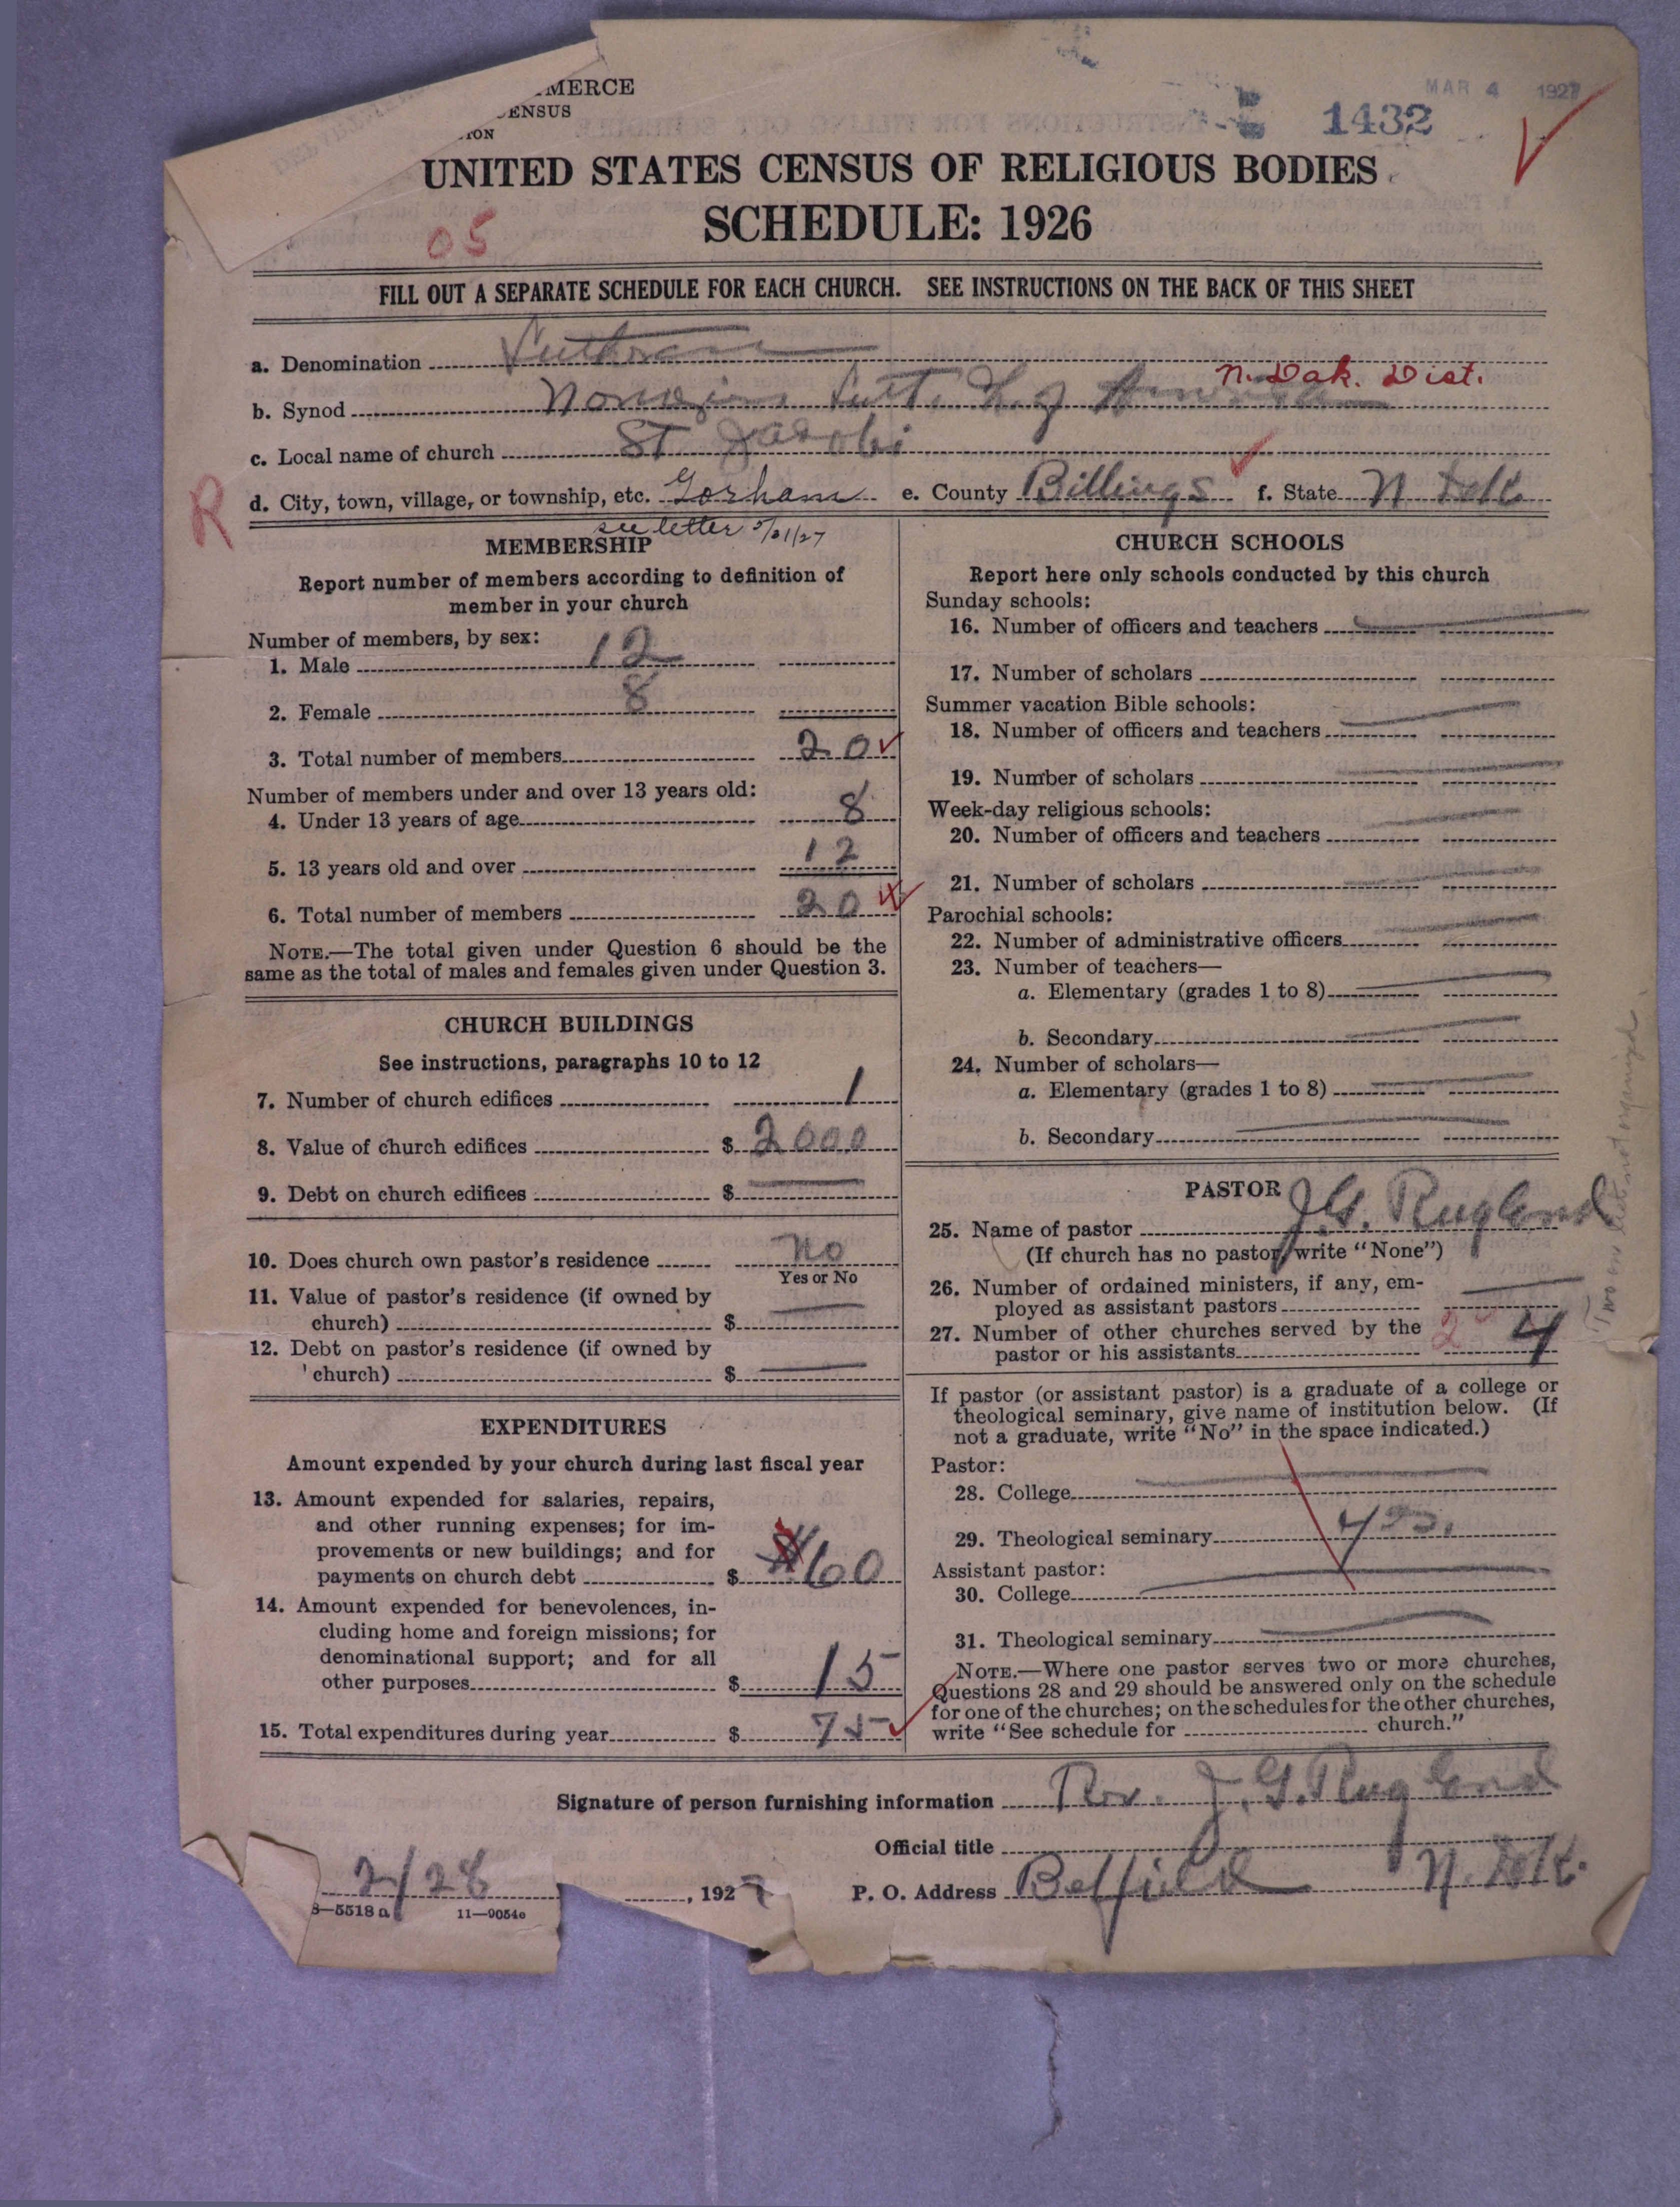 MERCE
ENSUS
ION
MAR 4 1927
1432
UNITED STATES CENSUS OF RELIGIOUS BODIES
SCHEDULE: 1926
05
FILL OUT A SEPARATE SCHEDULE FOR EACH CHURCH. SEE INSTRUCTIONS ON THE BACK OF THIS SHEET
a. Denomination Lutheran
N. Dak. Dist.
b. Synod Norwegian Luth. Ch. of America
c. Local name of church St Jacobi
R
d. City, town, village, or township, etc. Gorham e. County Billings f. State N Dak
see letter 5/21/27
MEMBERSHIP
Report number of members according to definition of
member in your church
Number of members, by sex:
1. Male 12
2. Female 8
3. Total number of members 20
Number of members under and over 13 years old:
4. Under 13 years of age 8
5. 13 years old and over 12
6. Total number of members 20
NOTE.—The total given under Question 6 should be the
same as the total of males and females given under Question 3.
CHURCH BUILDINGS
See instructions, paragraphs 10 to 12
7. Number of church edifices 1
8. Value of church edifices $ 2000
9. Debt on church edifices $
10. Does church own pastor's residence no
Yes or No
11. Value of pastor's residence (if owned by
church) $
12. Debt on pastor's residence (if owned by
church) $
EXPENDITURES
Amount expended by your church during last fiscal year
13. Amount expended for salaries, repairs,
and other running expenses; for im-
provements or new buildings; and for
payments on church debt $ 60
14. Amount expended for benevolences, in-
cluding home and foreign missions; for
denominational support; and for all
other purposes $ 15
15. Total expenditures during year $ 75
CHURCH SCHOOLS
Report here only schools conducted by this church
Sunday schools:
16. Number of officers and teachers
17. Number of scholars
Summer vacation Bible schools:
18. Number of officers and teachers
19. Number of scholars
Week-day religious schools:
20. Number of officers and teachers
21. Number of scholars
Parochial schools:
22. Number of administrative officers
23. Number of teachers—
a. Elementary (grades 1 to 8)
b. Secondary
24. Number of scholars—
a. Elementary (grades 1 to 8)
b. Secondary
PASTOR
25. Name of pastor J.G. Rugland
(If church has no pastor, write "None")
26. Number of ordained ministers, if any, em-
ployed as assistant pastors
27. Number of other churches served by the
pastor or his assistants 2 4
If pastor (or assistant pastor) is a graduate of a college or
theological seminary, give name of institution below. (If
not a graduate, write "No" in the space indicated.)
Pastor:
28. College
29. Theological seminary yes.
Assistant pastor:
30. College
31. Theological seminary
NOTE.—Where one pastor serves two or more churches,
Questions 28 and 29 should be answered only on the schedule
for one of the churches; on the schedules for the other churches,
write "See schedule for church."
Signature of person furnishing information Rev. J.G. Rugland
Official title
2/28, 1927
P. O. Address Belfield N. Dak.
8—5518 a 11—9054c